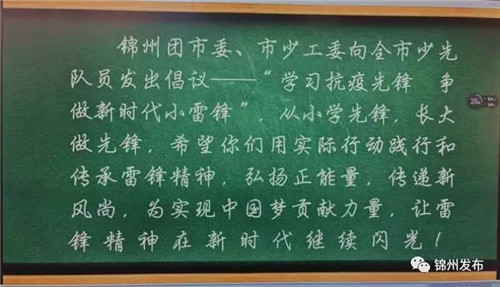 锦州团市委、市少工委向全市少先
队员发出倡议——“学习抗疫先锋 争
做新时代小雷锋”，从小学先锋，长大
做先锋，希望你们用实际行动践行和
传承雷锋精神，弘扬正能量，传递新
风尚，为实现中国梦贡献力量，让雷
锋精神在新时代继续闪光！
锦州发布